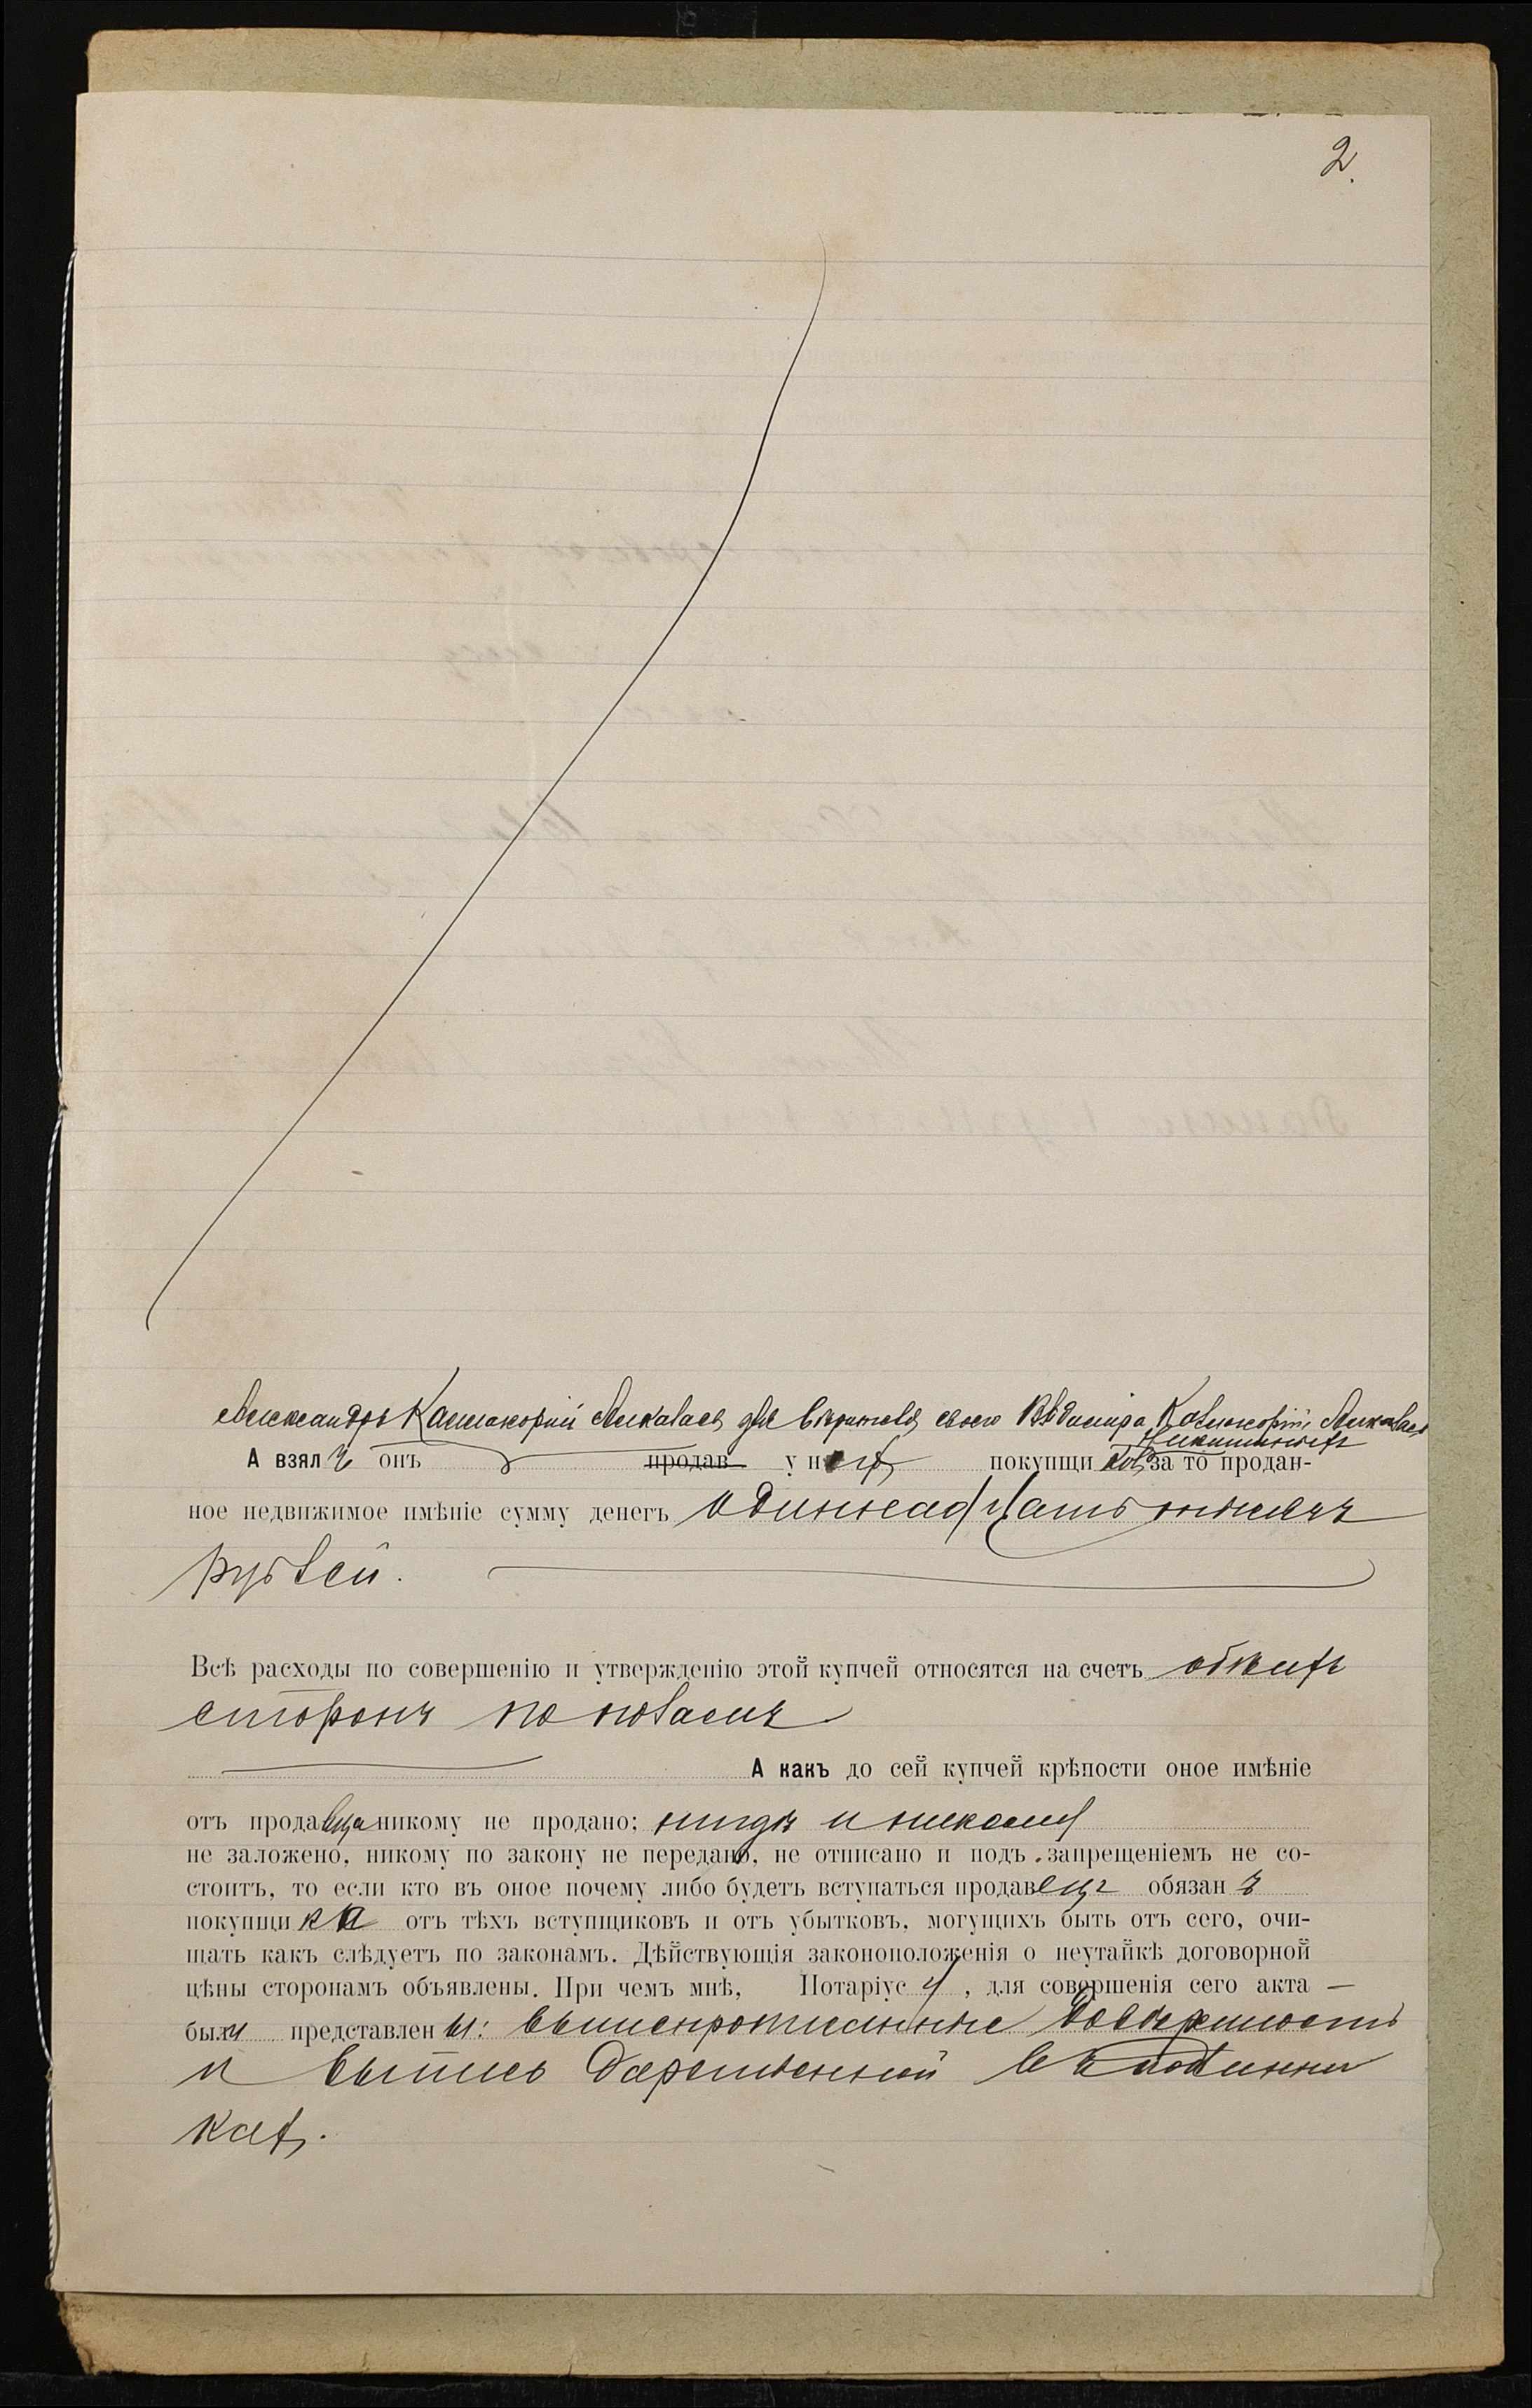 2.
Александръ для вѣрителя своего
А взялъ онъ продав у него покупщи за то продан-
ное недвижимое имѣніе сумму денегъ одиннадцать тысячъ
рублей.
Всѣ расходы по совершенію и утвержденію этой купчей относятся на счетъ обѣихъ
сторонъ по поламъ
А какъ до сей купчей крѣпости оное имѣніе
отъ продавца никому не продано; нигдѣ и никому
не заложено, никому по закону не передано, не отписано и подъ запрещеніемъ не со-
стоитъ, то если кто въ оное почему либо будетъ вступаться продавецъ обязанъ
покупщика отъ тѣхъ вступщиковъ и отъ убытковъ, могущихъ быть отъ сего, очи-
щать какъ слѣдуетъ по законамъ. Дѣйствующія законоположенія о неутайкѣ договорной
цѣны сторонамъ объявлены. При чемъ мнѣ, Нотаріусу, для совершенія сего акта —
были представлены: вышепрописанные довѣренность
и выпись дарственной въ подлинни
кахъ.